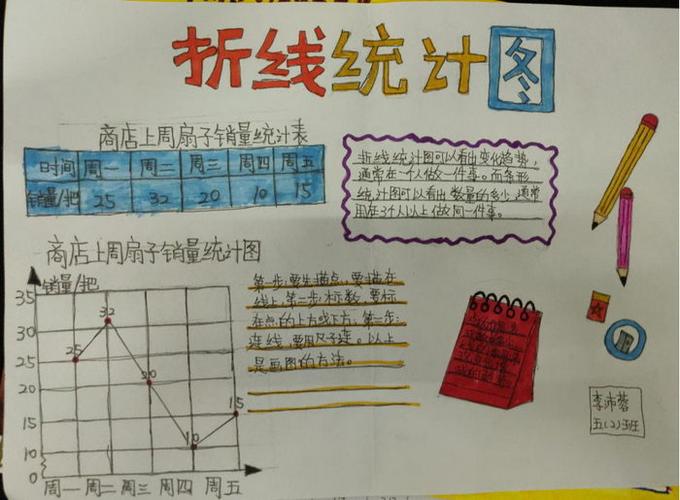 折线统计图
商店上周扇子销量统计表
时间 周一 周二 周三 周四 周五
销量/把 25 32 20 10 15
折线统计图可以看出变化趋势，
通常在一个人做一件事。而条形
统计图可以看出数量的多少，通常
用在3个人以上做同一件事。
商店上周扇子销量统计图
销量/把
35
30
25
20
15
10
0
25
32
20
10
15
周一 周二 周三 周四 周五
第一步：要先描点，要描在
线上，第二步：标数，要标
在点的上方或下方；第三步：
连线，要用尺子连。以上
是画图的方法。
李沛蓉
五(2)班